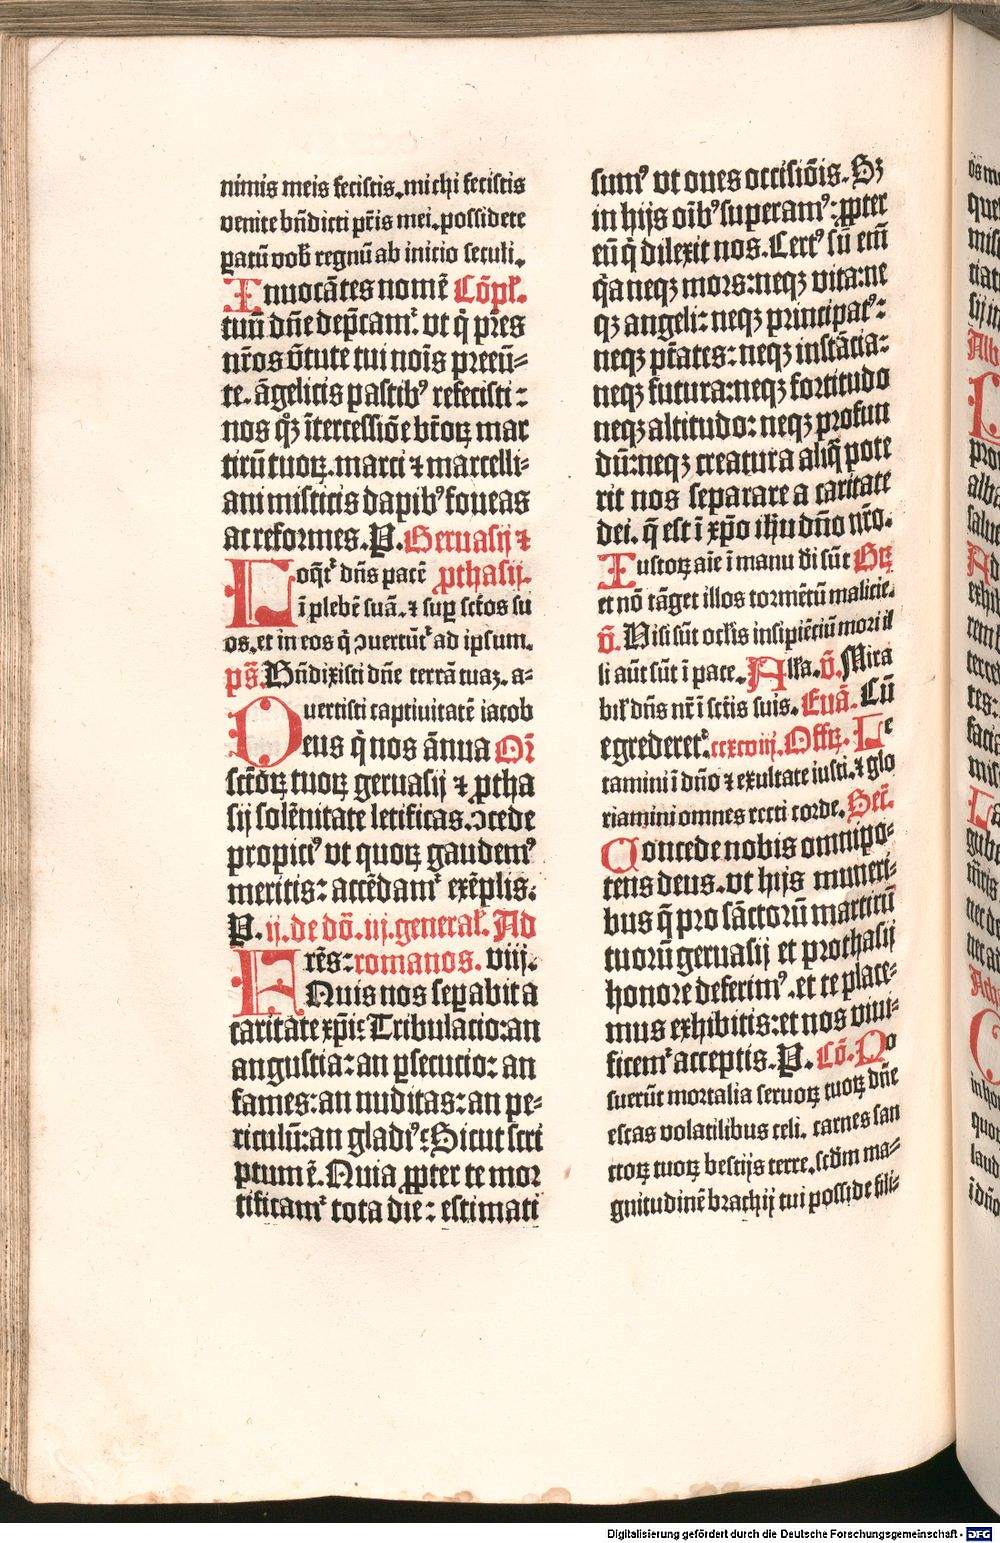 nimis meis fecistis. michi fecistis
venite bn̄dicti pr̄is mei. possidete
paratū vob̄ regnū ab inicio seculi.
Inuocātes nomē Cōpl̄.
tuū dn̄e dep̄camr̉ vt q̇ pr̄es
nr̄os v̄tute tui noīs preeū-
te. āgelicis pastibꝰ refecisti:
nos qꝫ ītercessiōe bt̄oꝝ mar
tirū tuoꝝ. marci ⁊ marcelli-
ani misticis dapibꝰ foueas
ac reformes. P. Geruasij ⁊
Loq̄tr̉ dn̄s pacē ꝓthasij.
ī plebē suā. ⁊ suꝑ sctōs su
os. et in eos q̇ ꝯuertūtr̉ ad ipsum.
ps̄. Bn̄dixisti dn̄e terrā tuaꝫ. a-
uertisti captiuitatē iacob
Deus q̇ nos ānua Or̄
sctōꝝ tuoꝝ geruasij ⁊ ꝓtha
sij solēnitate letificas. ꝯcede
propiciꝰ vt quoꝝ gaudemꝰ
meritis: accēdamr̉ exēplis.
P. ij. de dō. iij. general̄. Ad
Fr̄es: romanos. viij.
Quis nos sepabit a
caritate xp̄i? Tribulacio: an
angustia: an ꝑsecucio: an
fames: an nuditas: an pe-
riculū: an gladiꝰ? Sicut scri
ptum ē. Quia ꝓpter te mor
tificamr̉ tota die: estimati
sumꝰ vt oues occisiōis. Sꝫ
in hijs oībꝰ superamꝰ: ꝓpter
eū q̇ dilexit nos. Certꝰ sū em̄
q̇a neqꝫ mors: neqꝫ vita: ne
qꝫ angeli: neqꝫ principatꝰ:
neqꝫ pt̄ates: neqꝫ instācia:
neqꝫ futura: neqꝫ fortitudo
neqꝫ altitudo: neqꝫ profun
dū: neqꝫ creatura aliq̄ pote
rit nos separare a caritate
dei. q̄ est ī xp̄o ih̄u dn̄o nr̄o.
Iustoꝝ aīe ī manu dī sūt Gꝝ
et nō tāget illos tormētū malicie.
v̄. Visi sūt ocl̄is insipiētiū mori il
li aūt sūt ī pace. All̄a. v̄. Mira
bil̄ dn̄s nr̄ ī sctīs suis. Euā. Cū
egrederetr̉ ccxcviij. Offꝝ. Le
tamini ī dn̄o ⁊ exultate iusti. ⁊ glo
riamini omnes recti corde. Secr̄.
Concede nobis omnipo-
tens deus. vt hijs muneri-
bus q̄ pro sāctorū martirū
tuorū geruasij et prothasij
honore deferimꝰ. et te place-
mus exhibitis: et nos viui-
ficemr̉ acceptis. P. Cō. Po
suerūt mortalia seruoꝝ tuoꝝ dn̄e
escas volatilibus celi. carnes san
ctoꝝ tuoꝝ bestijs terre. scdm̄ ma-
gnitudinē brachij tui posside fili-
Digitalisierung gefördert durch die Deutsche Forschungsgemeinschaft - DFG